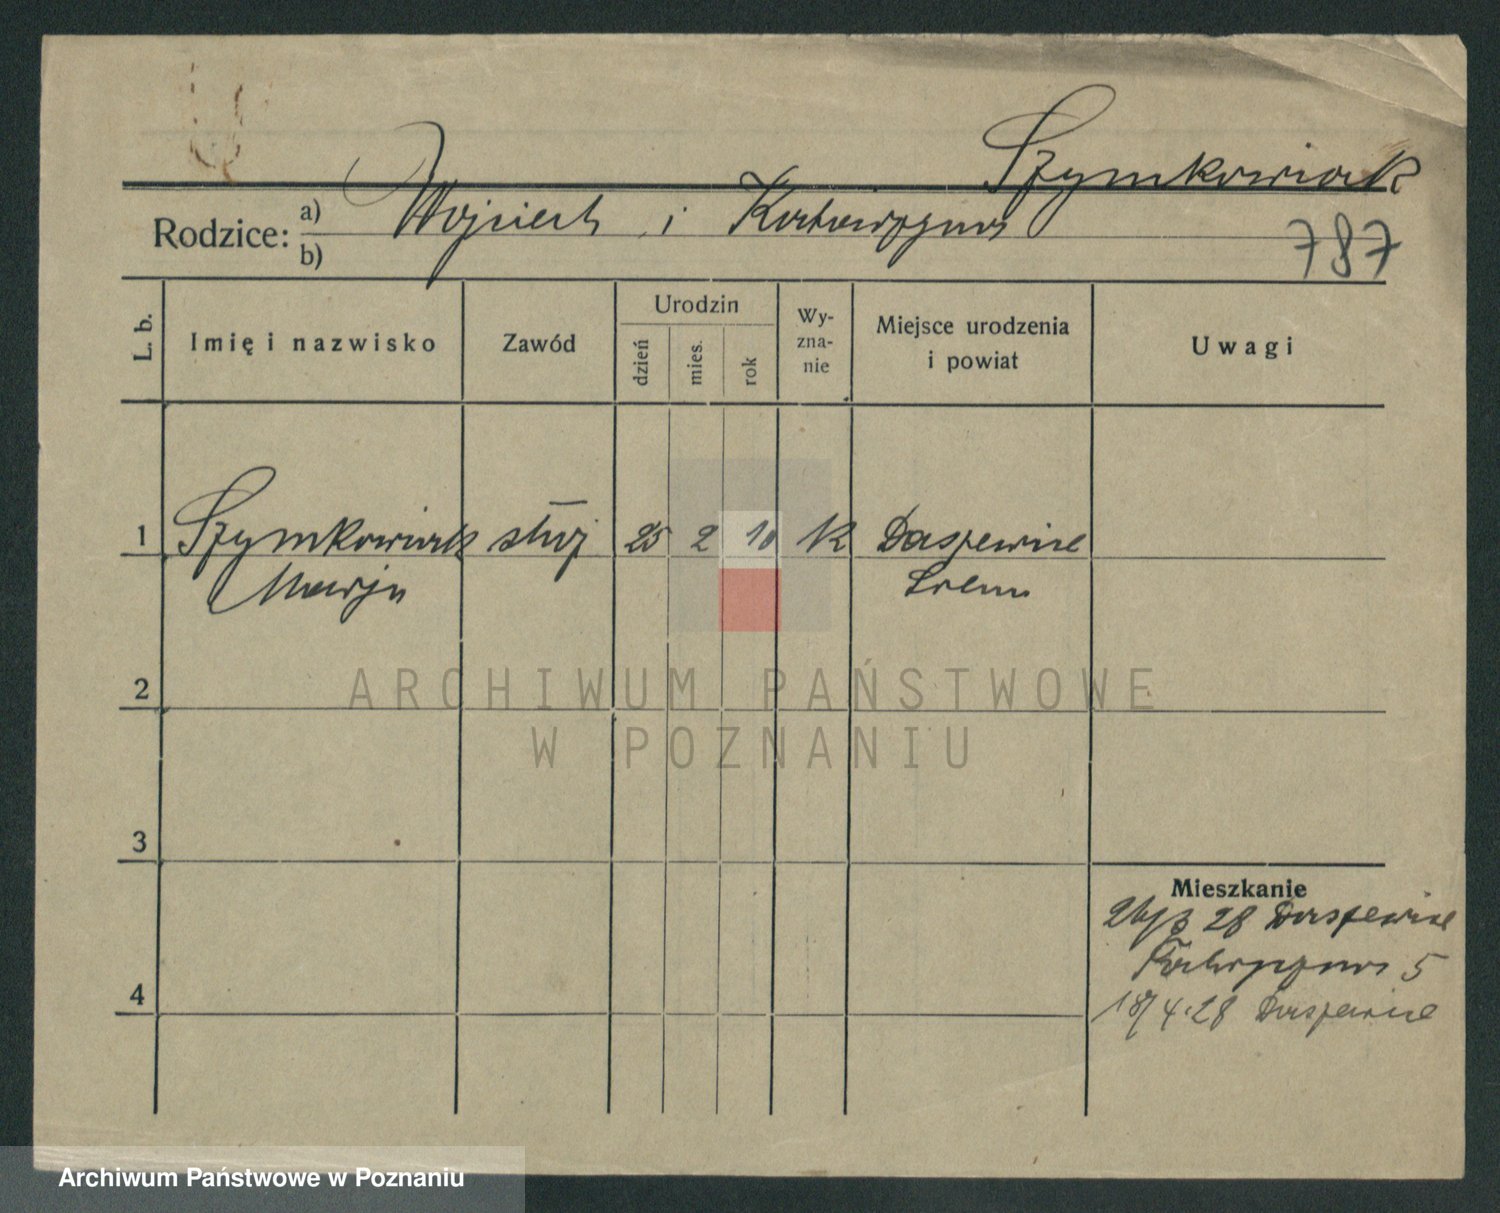 Szymkowiak
Rodzice: a) Wojciech i Katarzyna
b)
787
L. b.
Imię i nazwisko
Zawód
Urodzin
dzień
mies.
rok
Wy-
zna-
nie
Miejsce urodzenia
i powiat
Uwagi
1 Szymkowiak służ 25 2 10 K Daszewice
Marja Śrem
2
3
4
Mieszkanie
28 Daszewice
5
18/4.28 Daszewice
ARCHIWUM PAŃSTWOWE
W POZNANIU
Archiwum Państwowe w Poznaniu